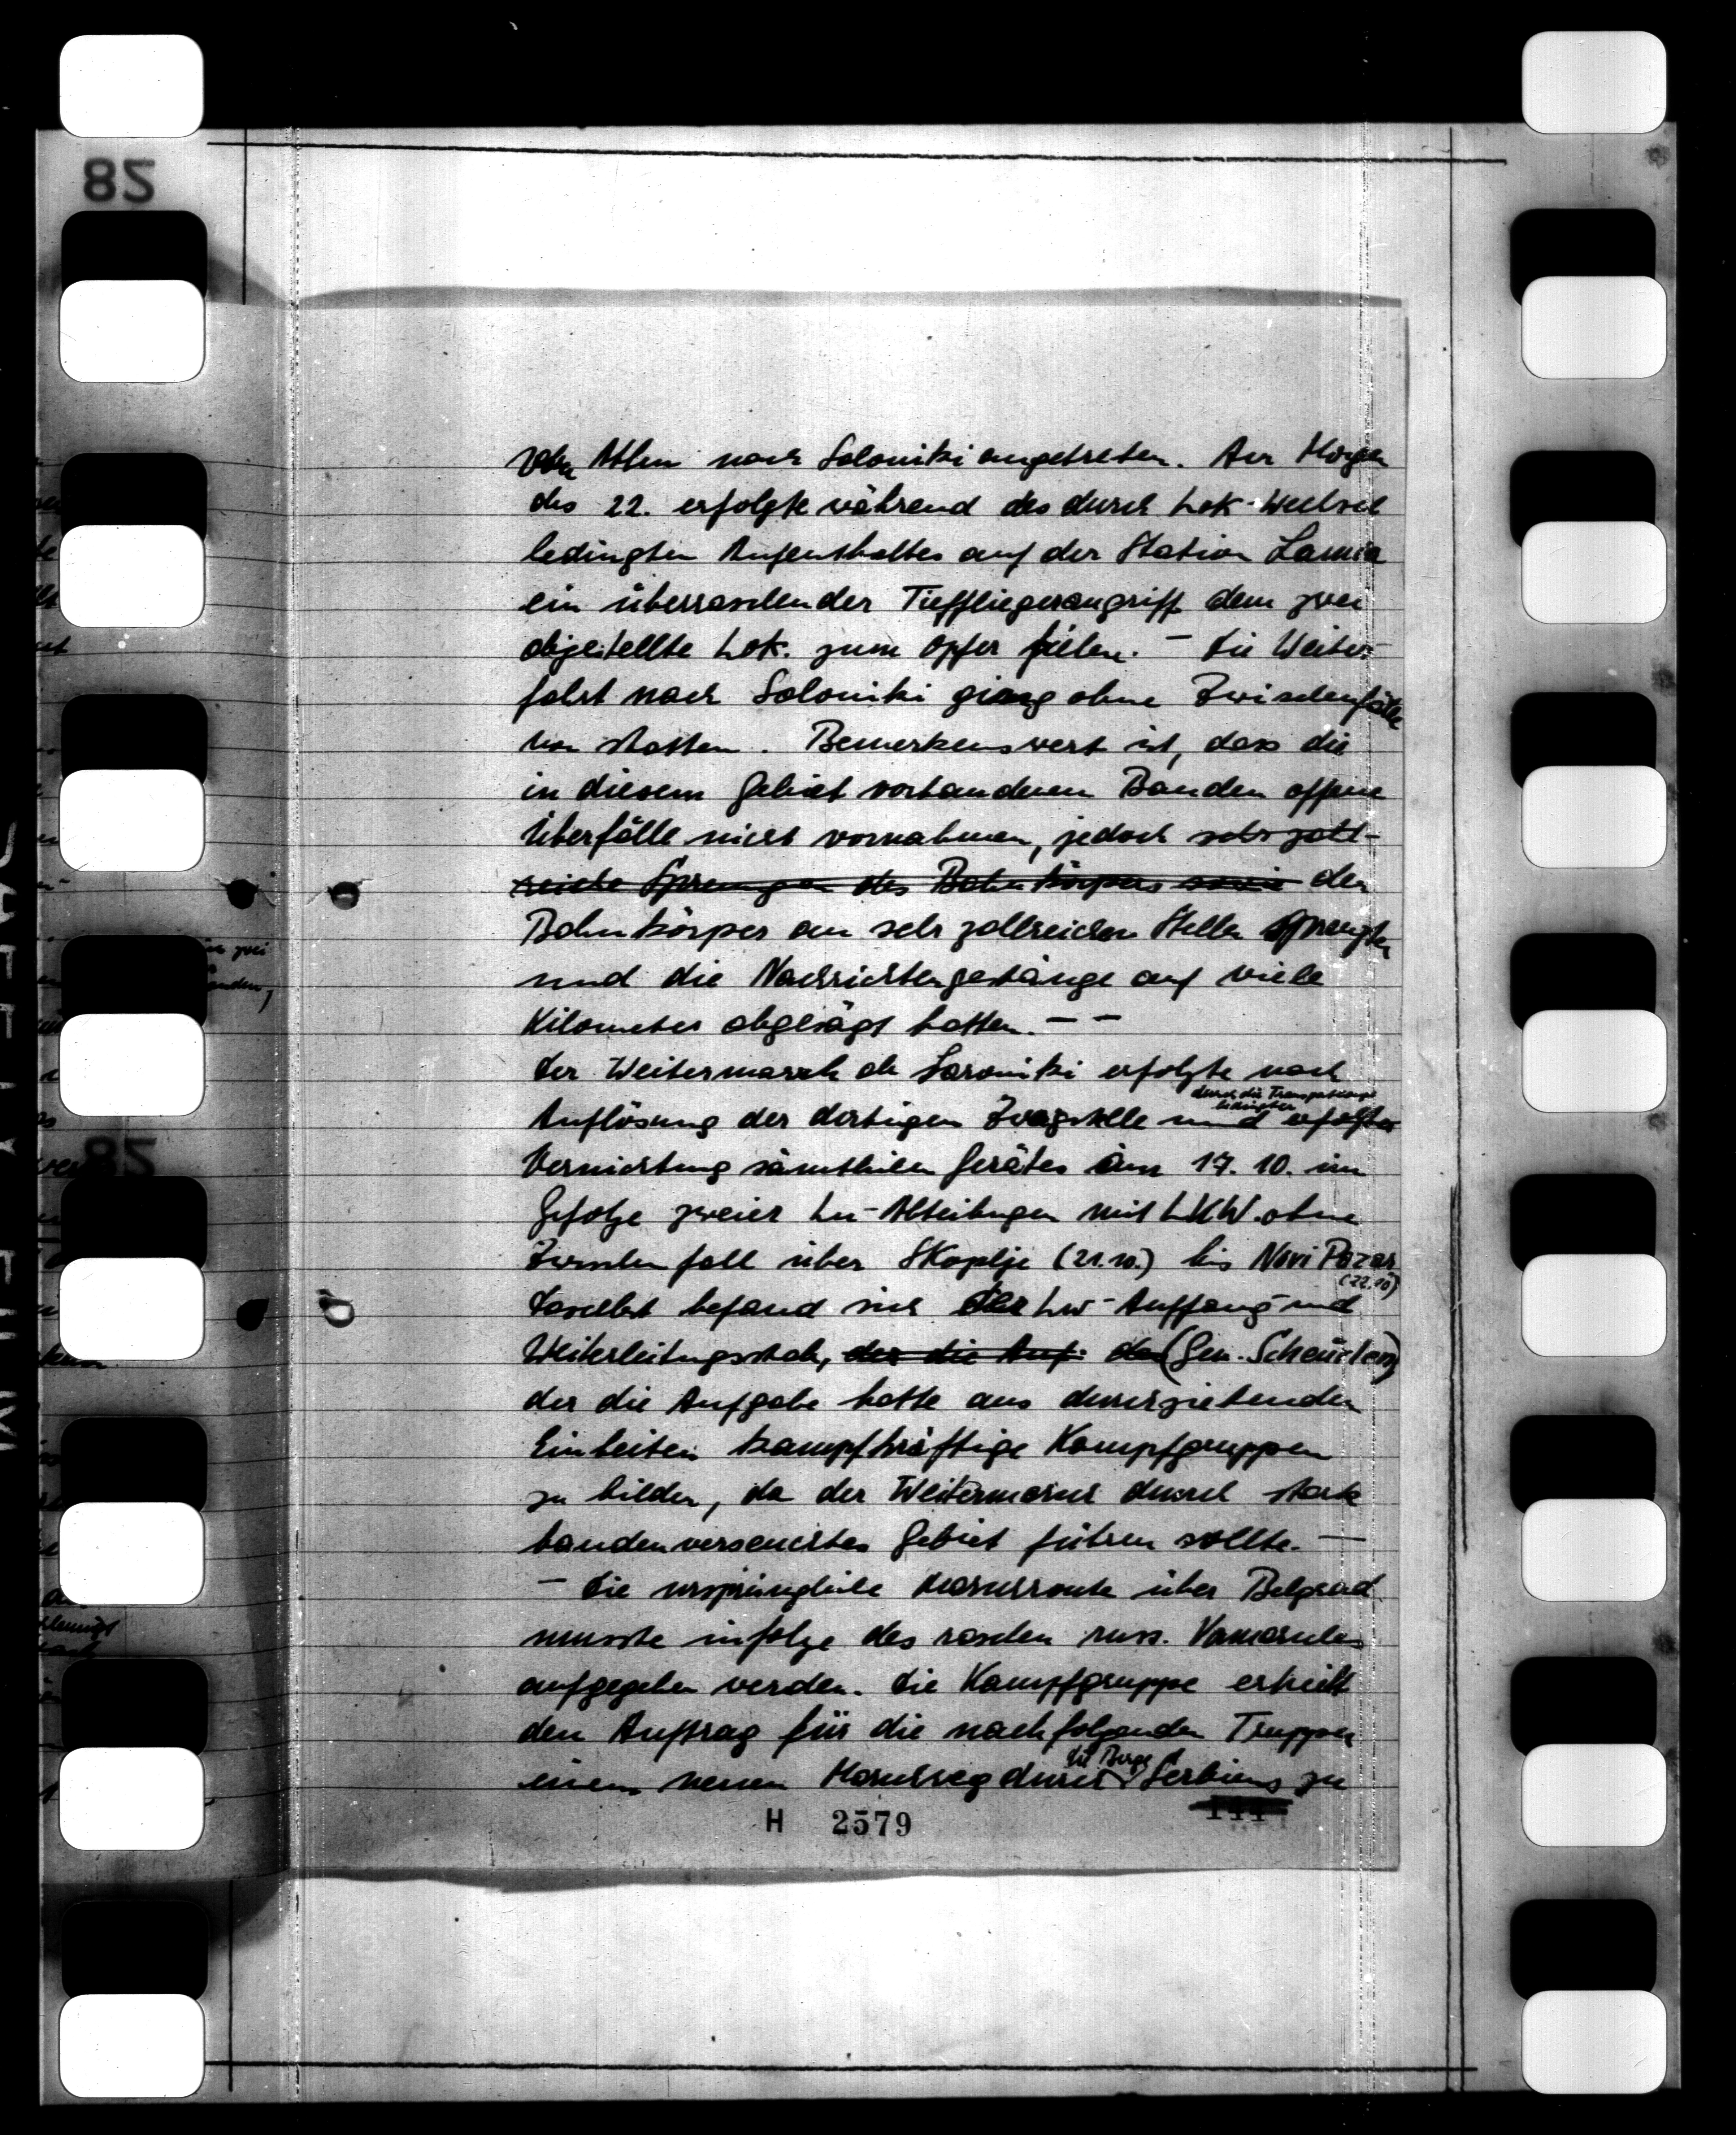 von Athen nach Saloniki angetreten. Am Morgen
des 22. erfolgte während des durch Lok-Wechsel
bedingten Aufenthaltes auf der Station Lamia
ein überraschender Tieffliegerangriff dem zwei
abgestellte Lok. zum Opfer fielen. – Die Weiter-
fahrt nach Saloniki ging ohne Zwischenfälle
von statten. Bemerkenswert ist, dass die
in diesem Gebiet vorhandenen Banden offene
Überfälle nicht vornahmen, jedoch sehr zahl-
reiche Sprengungen des Bahnkörpers sowie den
Bahnkörper an sehr zahlreichen Stellen sprengten
und die Nachrichtengestänge auf viele
Kilometer abgesägt hatten. – –
Der Weitermarsch ab Saloniki erfolgte nach
durch die Transportlage
bedingter
Auflösung der dortigen Zweigstelle und erfolgter
Vernichtung sämtlichen Gerätes am 17. 10. im
Gefolge zweier Ln-Abteilungen mit LKW. ohne
Zwischenfall über Skoplje (21.10.) bis Novi Pazar
(22.10)
Daselbst befand sich der Lw-Auffang- und
Weiterleitungsstab, der die Auf- der (Gen. Scheurlen)
der die Aufgabe hatte aus durchziehenden
Einheiten kampfkräftige Kampfgruppen
zu bilden, da der Weitermarsch durch stark
bandenverseuchtes Gebiet führen sollte. –
– Die ursprüngliche Marschroute über Belgrad
musste infolge des raschen russ. Vormarsches
aufgegeben werden. Die Kampfgruppe erhielt
den Auftrag für die nachfolgenden Truppen
die Berge
einen neuen Marschweg durch Serbiens zu
H 2579
144
82
82